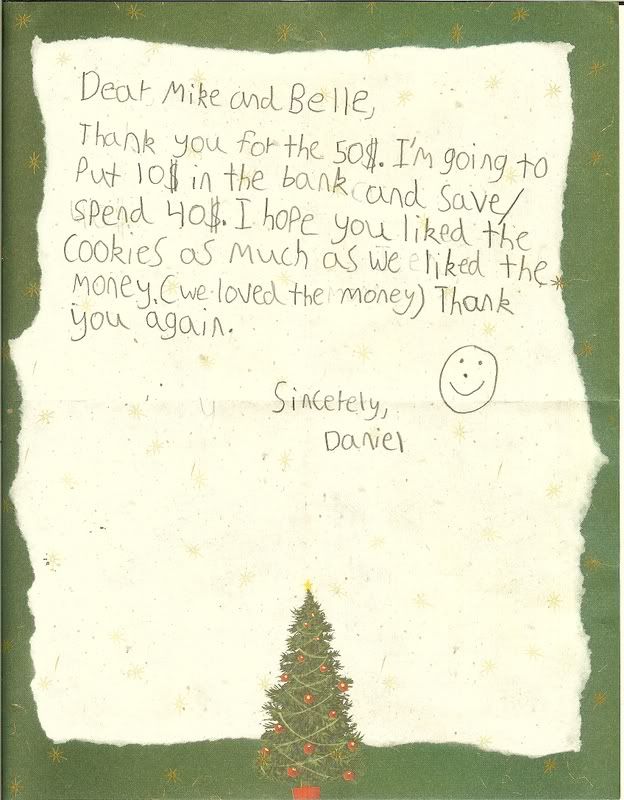 Dear Mike and Belle,
Thank you for the 50$. I'm going to
Put 10$ in the bank and save/
spend 40$. I hope you liked the
Cookies as much as we liked the
money. (we loved the money) Thank
you again.
Sincerely,
Daniel